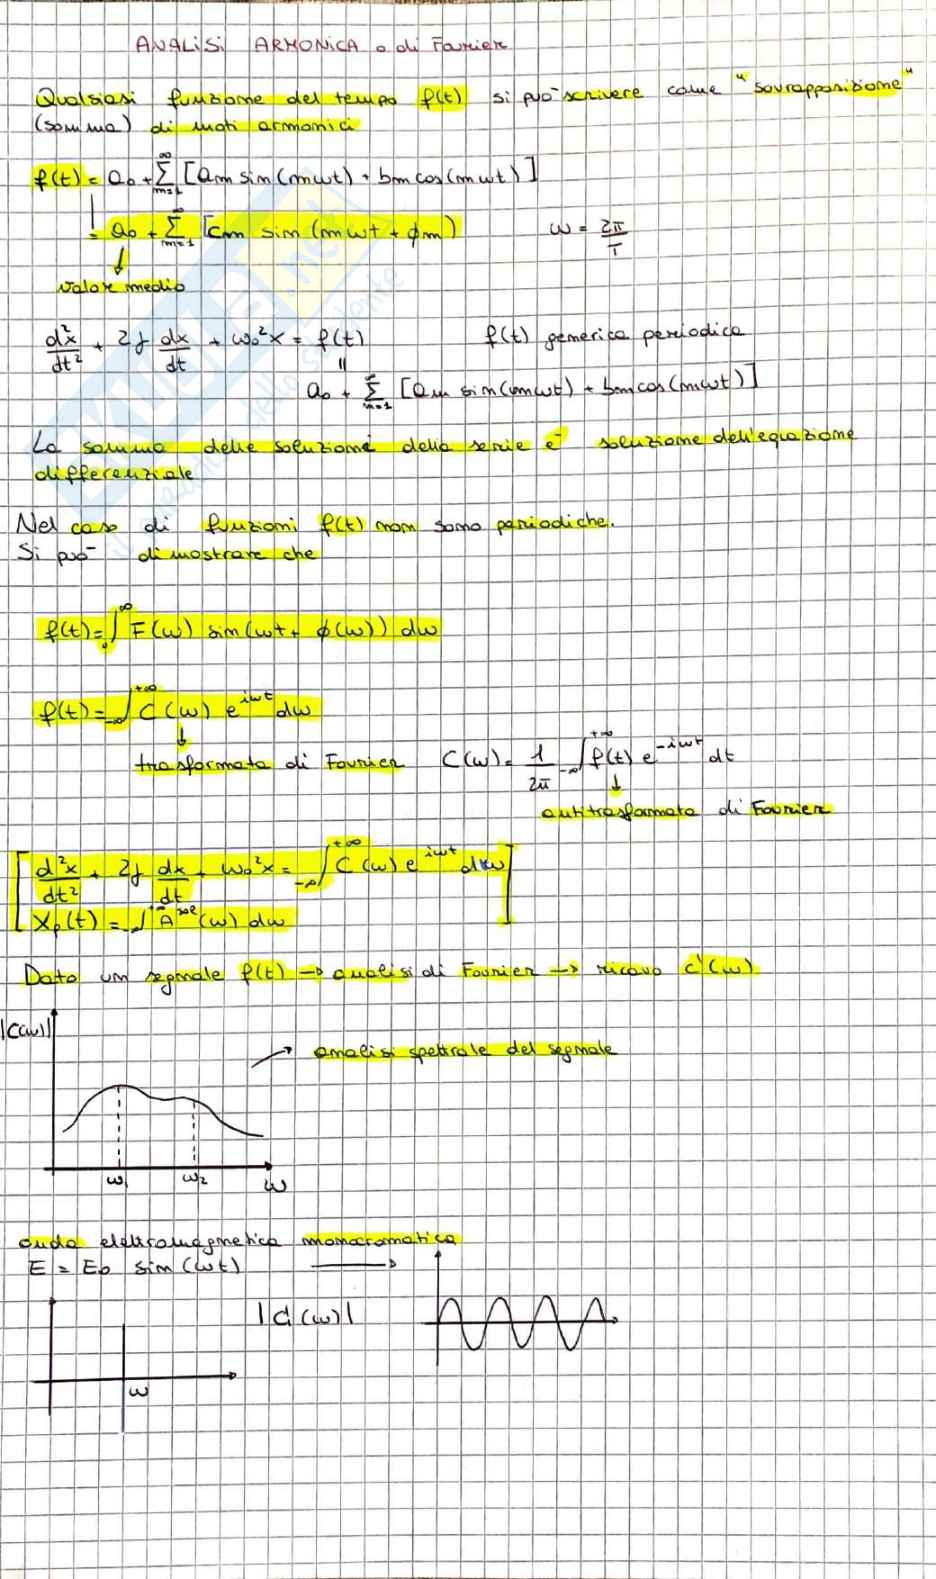 ANALISI ARMONICA o di Fourier
Qualsiasi funzione del tempo f(t) si può scrivere come "sovrapposizione"
(somma) di moti armonici
f(t) = a₀ + Σ_{m=1}^{∞} [am sin(mωt) + bm cos(mωt)]
= a₀ + Σ_{m=1}^{∞} [cm sin(mωt + ϕm) ω = 2π/T
valore medio
d²x/dt² + 2γ dx/dt + ω₀²x = f(t) f(t) generica periodica
a₀ + Σ_{m=1}^{∞} [am sin(mωt) + bm cos(mωt)]
La somma delle soluzioni della serie è soluzione dell'equazione
differenziale
Nel caso di funzioni f(t) non sono periodiche.
Si può dimostrare che
f(t) = ∫₀^∞ F(ω) sin(ωt + ϕ(ω)) dω
f(t) = ∫_{-∞}^{+∞} C(ω) e^{iωt} dω
trasformata di Fourier C(ω) = 1/2π ∫_{-∞}^{+∞} f(t) e^{-iωt} dt
antitrasformata di Fourier
[d²x/dt² + 2γ dx/dt + ω₀²x = ∫_{-∞}^{+∞} C(ω) e^{iωt} dω]
Xp(t) = ∫ A (ω) dω
Dato un segnale f(t) → analisi di Fourier → ricavo C(ω)
|C(ω)|
analisi spettrale del segnale
ω₁ ω₂ ω
onda elettromagnetica monocromatica
E = E₀ sin(ωt)
|C(ω)|
ω